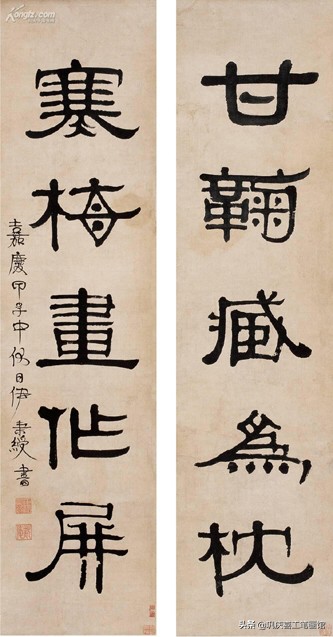 Kongfz.com
甘鞠臧為枕
寒梅畫作屏
嘉慶甲子中伏日伊秉綬書
头条